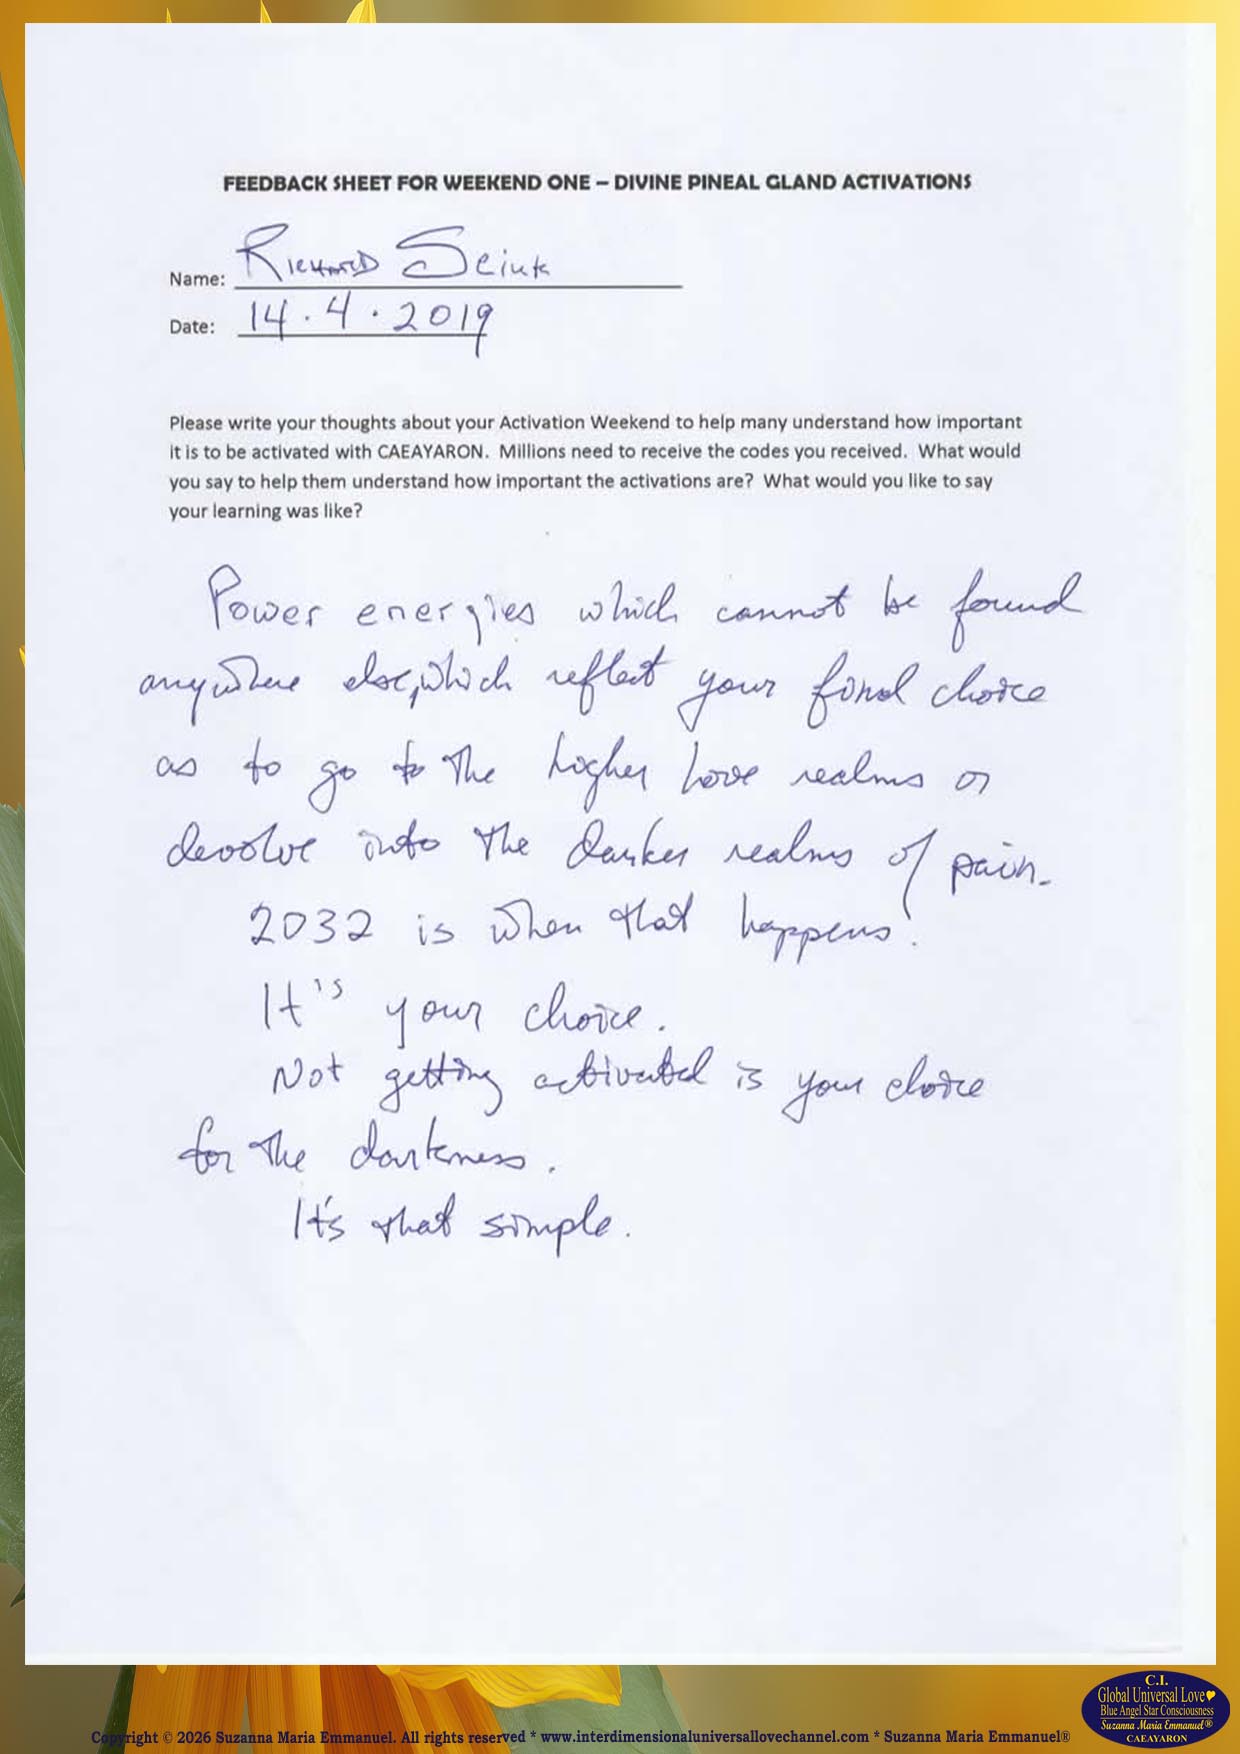 FEEDBACK SHEET FOR WEEKEND ONE – DIVINE PINEAL GLAND ACTIVATIONS
Name: RICHARD
Date: 14.4.2019
Please write your thoughts about your Activation Weekend to help many understand how important
it is to be activated with CAEAYARON. Millions need to receive the codes you received. What would
you say to help them understand how important the activations are? What would you like to say
your learning was like?
Power energies which cannot be found
anywhere else, which reflect your final choice
as to go to the higher Love realms or
devolve into the darker realms of pain.
2032 is when that happens!
It's your choice.
Not getting activated is your choice
for the darkness.
It's that simple.
C.I.
Global Universal Love
Blue Angel Star Consciousness
Suzanna Maria Emmanuel®
CAEAYARON
Copyright © 2026 Suzanna Maria Emmanuel. All rights reserved * www.interdimensionaluniversallovechannel.com * Suzanna Maria Emmanuel®